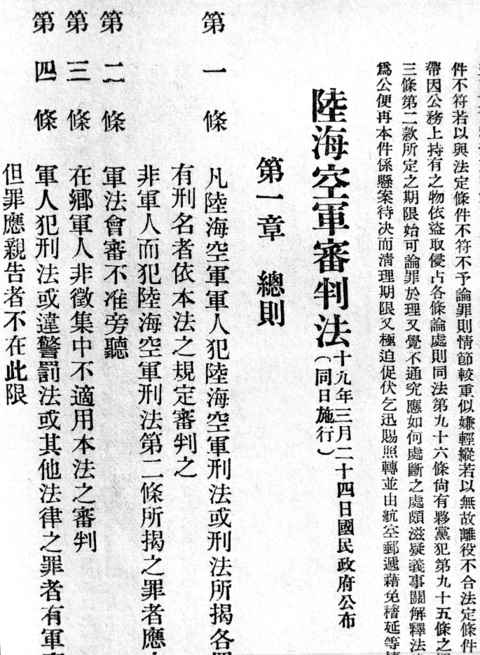 件不符若以與法定條件不符不予論罪則情節較重似嫌輕縱若以無故離役不合法定條件
帶因公務上持有之物依盜取侵占各條論處則同法第九十六條尙有夥黨犯第九十五條之
三條第二款所定之期限始可論罪於理又覺不通究應如何處斷之處頗滋疑義事關解釋法
爲公便再本件係懸案待決而淸理期限又極迫促伏乞迅賜照轉並由航空郵遞藉免稽延等
陸海空軍審判法(十九年三月二十四日國民政府公布
同日施行)
第一章 總則
第一條 凡陸海空軍軍人犯陸海空軍刑法或刑法所揭各
有刑名者依本法之規定審判之
非軍人而犯陸海空軍刑法第二條所揭之罪者應
第二條 軍法會審不准旁聽
第三條 在鄉軍人非徵集中不適用本法之審判
第四條 軍人犯刑法或違警罰法或其他法律之罪者有軍
但罪應親告者不在此限